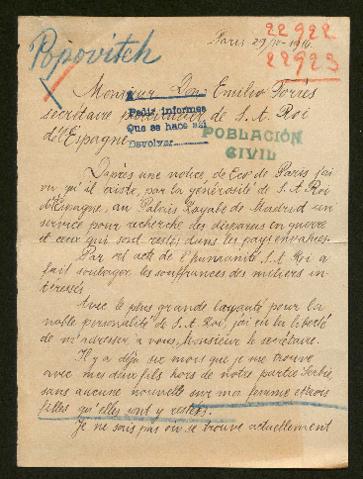 Popovitch
22922
22923
Paris 29/IV-1916.
Monsieur Don Emilio Torrès
A
Pedir informes
Que se hace así
Devolver
secrétaire particulier de S. A. Roi
de l'Espagne
POBLACIÓN
CIVIL
D'après une notice, de Eco de Paris j'ai
vu qu'il existe, par la générosité de S. A Roi
d'Espagne, au Palais Royale de Madrid un
service pour recherche des disparus en guerre
et ceux qui sont restés dans les pays envahies.
Par cet acte de l'humanité S. A Roi a
fait soulager les souffrances des milliers in-
teressés
Avec le plus grande loyauté pour la
noble personalité de S. A. Roi, j'ai eu la liberté
de m'adresser à vous, Monsieur le secrétaire.
Il y a déjà six mois que je me trouve
avec mes deux fils hors de notre patrie Serbie,
sans aucune nouvelle sur ma femme et trois
filles qu'elles ont y restées.
Je ne sais pas où se trouve actuellement